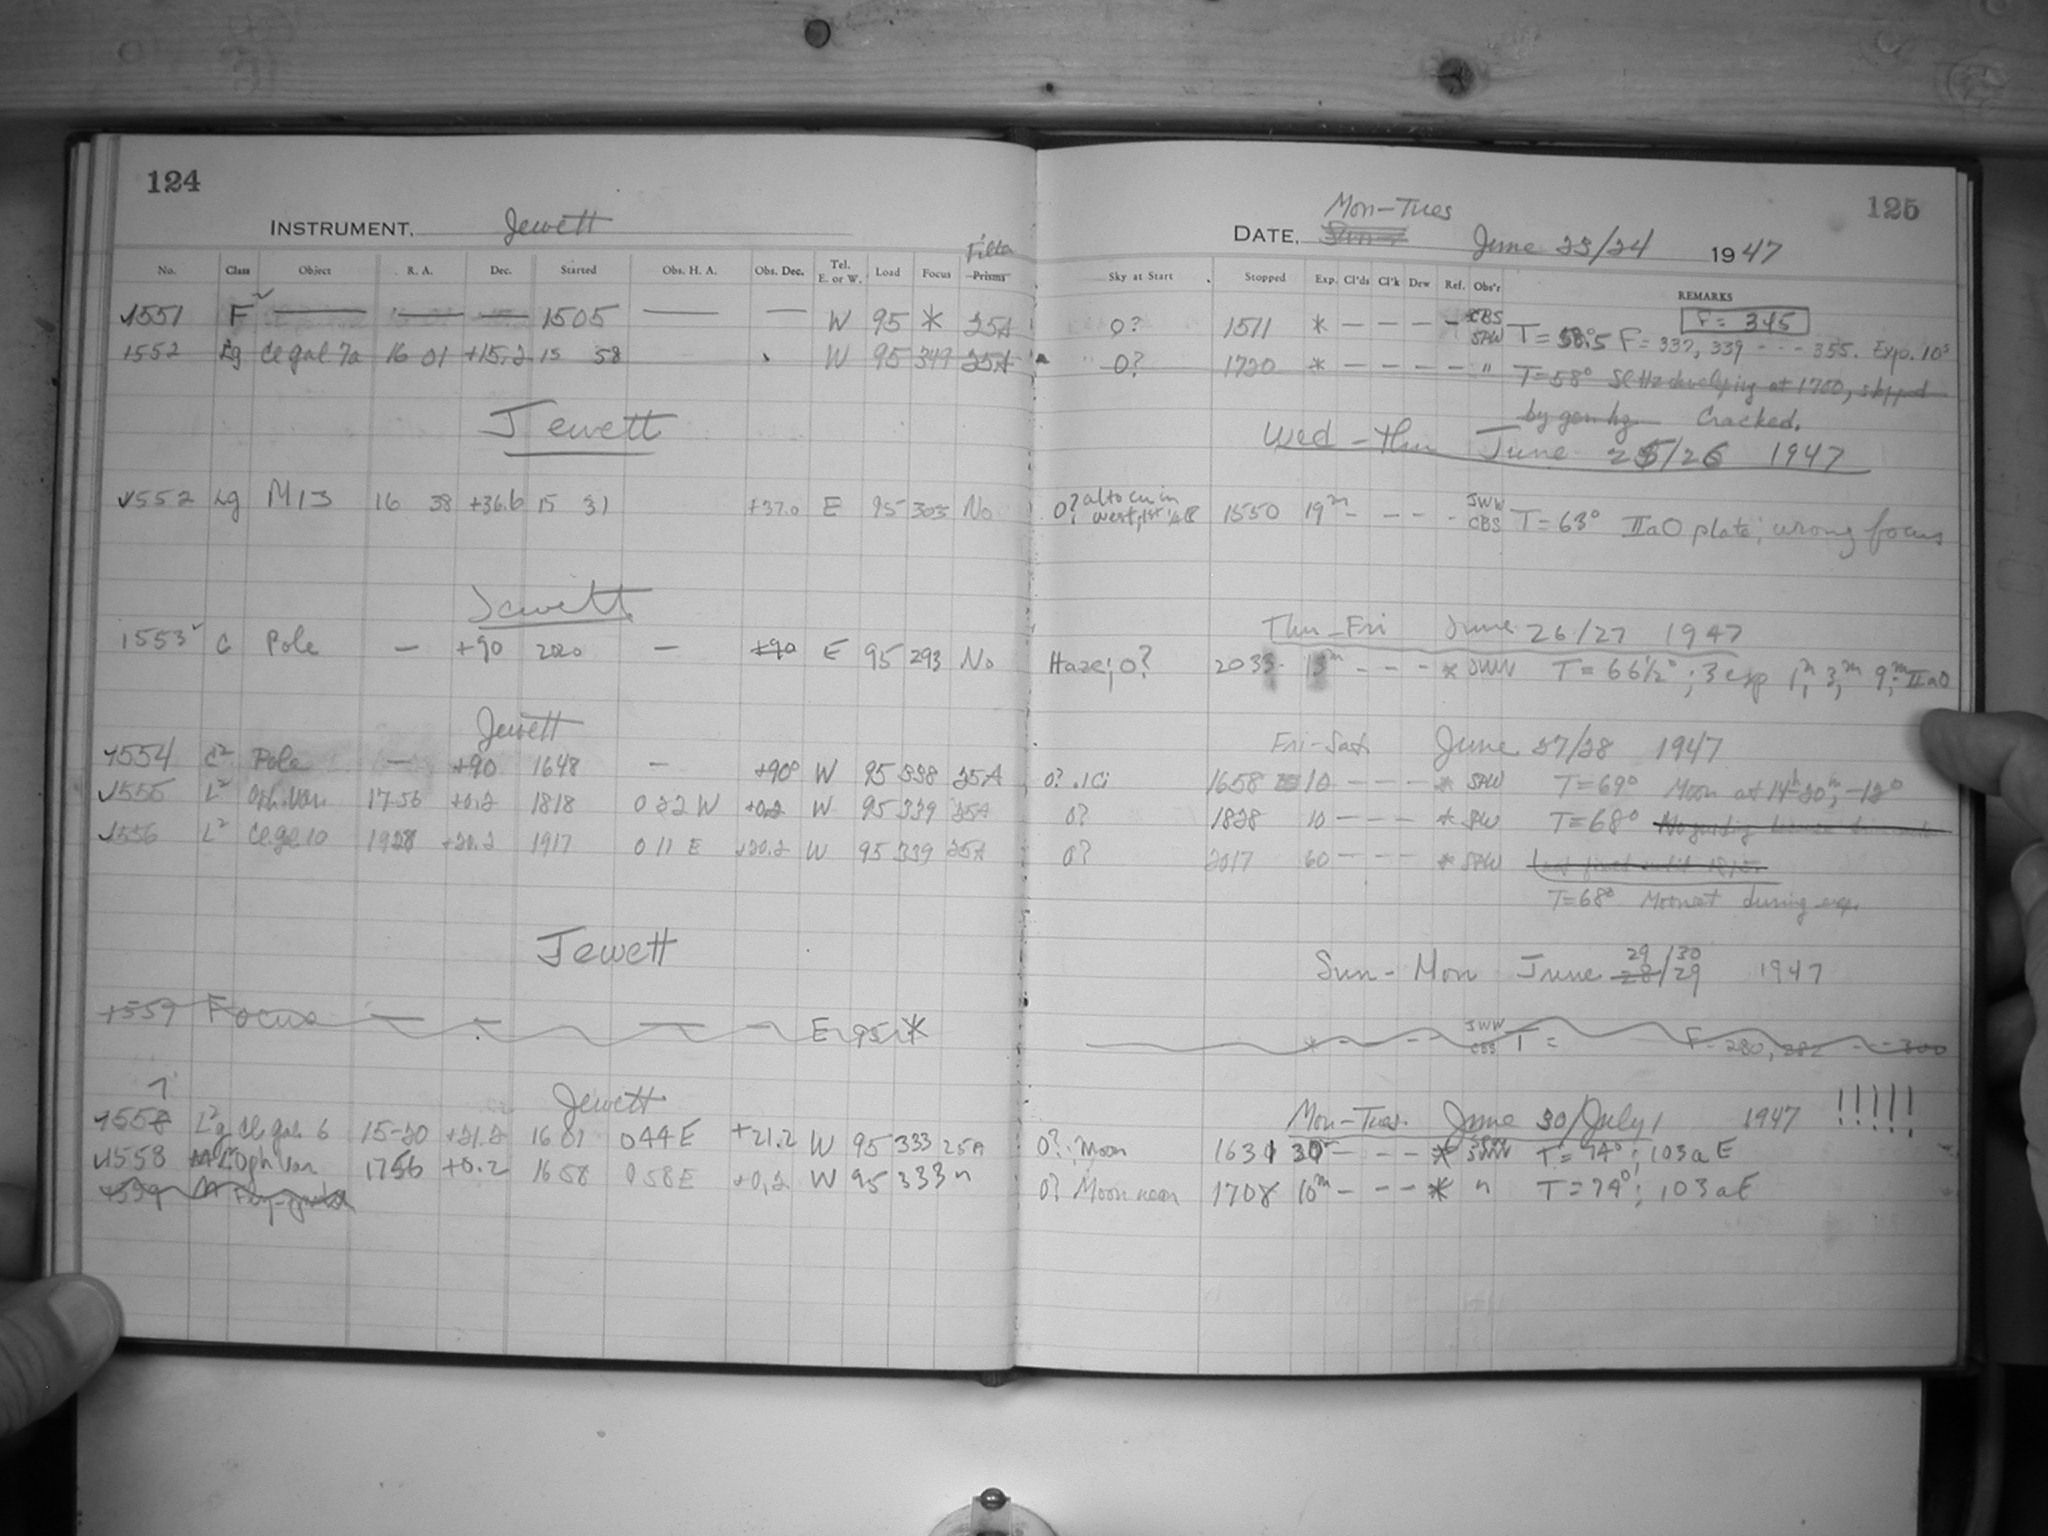 124
INSTRUMENT. Jewett
Filter
No. Class Object R. A. Dec. Started Obs. H. A. Obs. Dec. Tel. E. or W. Load Focus Prisms
1551 F — — — 1505 — — W 95 * 25A
1552 Lg Cl gal 7a 16 01 +15.2 15 58 W 95 349 25A
Jewett
1552 Lg M13 16 38 +36.6 15 31 +37.0 E 95 303 No
Jewett
1553 C Pole — +90 2020 — +90 E 95 293 No
Jewett
1554 C2 Pole — +90 1648 — +90° W 95 338 25A
1555 L2 Oph. Var. 17 56 +0.2 1818 0 22 W +0.2 W 95 339 25A
1556 L2 Cl. gal 10 1928 +20.2 1917 0 11 E +20.2 W 95 339 25A
Jewett
1557 Focus — — — — E 95 *
7
1558 L2g Cl. gal. 6 15-20 +21.2 16 01 0 44 E +21.2 W 95 333 25A
1558 Oph Var. 1756 +0.2 1658 0 58 E +0.2 W 95 333 "
1559
125
Mon-Tues
DATE, June 23/24 1947
Sky at Start Stopped Exp. Cl'ds Cl'k Dew Ref. Obs'r REMARKS
F = 345
0? 1511 * — — — — CBS SHW T = 58.5 F = 337, 339 - - - 355. Exp. 10s
0? 1720 * — — — — " T = 58° developing at 1700, stopped
by gen hg. Cracked.
Wed - Thu June 25/26 1947
0? alto cu in west, 1550 19m - - - - JWW CBS T = 63° IIaO plate; wrong focus
Thu - Fri June 26/27 1947
Haze; 0? 2033 13m - - - * JWW T = 66½°; 3 exp 1m, 3m, 9m; IIaO
Fri-Sat. June 27/28 1947
0? .1Ci 1658 10 - - - * SHW T = 69° Moon at 14h20m, -12°
0? 1828 10 - - - * SHW T = 68° No guiding
0? 2017 60 - - - * SHW
T = 68° Moonset during exp.
Sun - Mon June 29/30 28/29 1947
* - - - JWW CBS T = F - 280, 282 - - 300
Mon-Tues. June 30/July 1 1947 !!!!!
0?; Moon 1631 30 - - - * T = 74°; 103a E
0? Moon near 1708 10m - - - * " T = 74°; 103a E